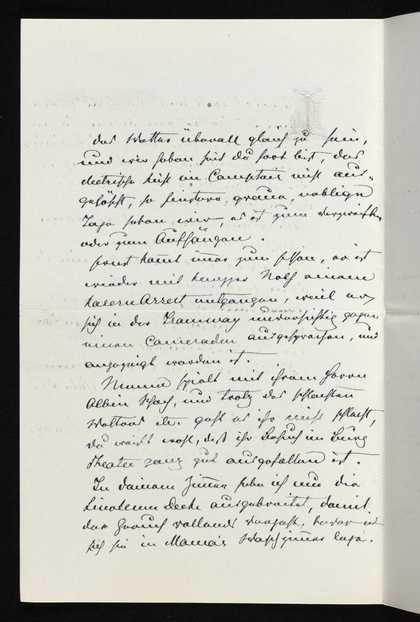 das Wetter überall gleich zu sein,
und wir haben seit du fort bist, das
electrische Licht im Comptoir nicht aus-
gelöscht, so finstere, graue, neblige
Tage haben wir, es ist zum Verzweifeln
oder zum Aufhängen.
Ernst kommt immer zum Essen, er ist
wieder mit knapper Noth einem
Kasern Arrest entgangen, weil er
sich in der Tramway unvorsichtig gegen
einen Cameraden ausgesprochen, und
angezeigt worden ist.
Mama spielt mit ihrem Herrn
Albin Schach, und trotz des schlechten
Wetters etc. geht es ihr nicht schlecht,
du weißt wohl, daß ihr Besuch im Burg
Theater ganz gut ausgefallen ist.
In deinem Zimmer habe ich nun die
Linoleum Decke ausgebreitet, damit
der Geruch vollends vergeht, bevor ich
sie in Mama's Waschzimmer lege.